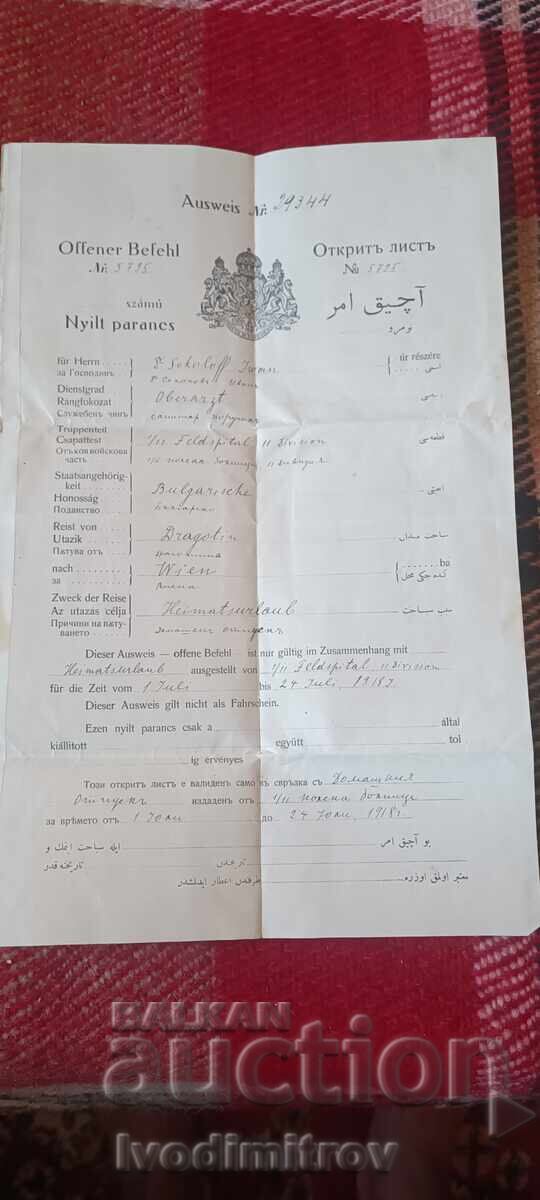 Ausweis Nr. 29344
Offener Befehl
Nr. 5795
számú
Nyilt parancs
Открить листъ
№ 5795
آچیق امر
نومرو
für Herrn
за Господинъ
Dr Sokoloff Iwan
úr részére
Dienstgrad
Rangfokozat
Служебенъ чинъ
Oberarzt
Truppenteil
Csapattest
Отъ коя войскова
часть
1/11 Feldspital 11 Division
Staatsangehörig-
keit
Honosság
Поданство
Bulgarische
Reist von
Utazik
Пѫтува отъ
Dragotin
nach
за
Wien
Виена
ba
Zweck der Reise
Az utazás célja
Причини на пѫту-
ването
Heimatsurlaub
домашенъ отпускъ
Dieser Ausweis — offene Befehl — ist nur gültig im Zusammenhang mit
Heimatsurlaub ausgestellt von 1/11 Feldspital 11 Division
für die Zeit vom 1 Juli bis 24 Juli, 1918 J
Dieser Ausweis gilt nicht als Fahrschein.
Ezen nyilt parancs csak a által
kiállitott együtt tol
ig érvényes
Този открить листъ е валиденъ само въ свръзка съ Домашния
Отпускъ издаденъ отъ 1/11 полска болница
за врѣмето отъ 1 Юли до 24 Юли, 1918 г
بو آچیق امر
BALKAN
auction
Ivodimitrov